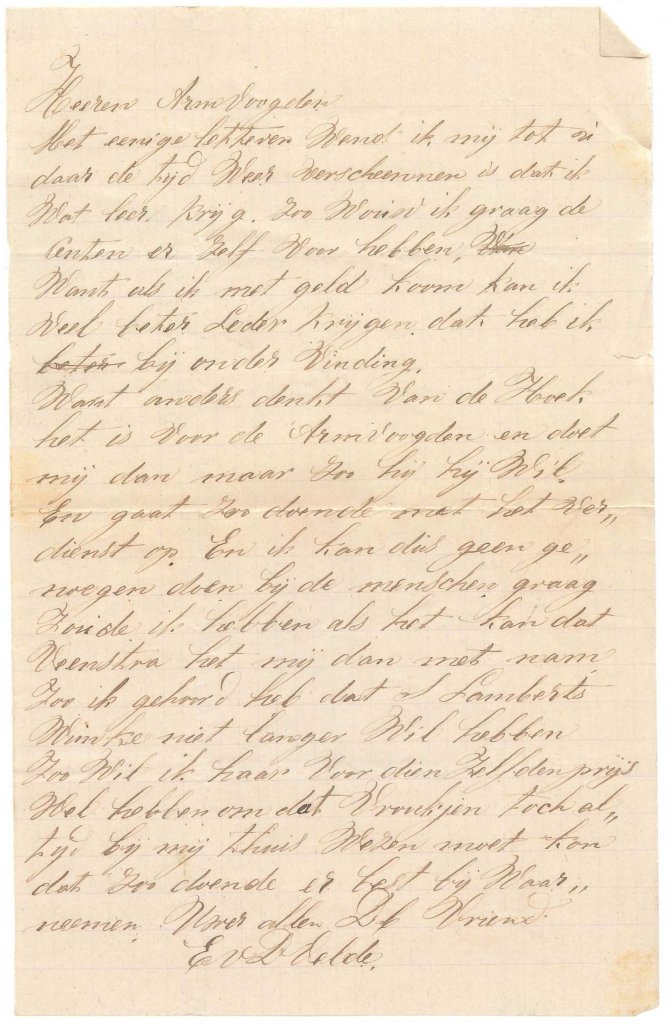 Heeren ArmVoogden
Met eenige letteren Wend ik mij tot u
daar de tijd Weer verscheennen is dat ik
Wat leer krijg. Zoo Wouw ik graag de
Centen er Zelf Voor hebben, Van
Want als ik met geld koom kan ik
Veel beter Leder krijgen dat heb ik
beter bij onder Vinding.
Want anders denkt Van de Hoek
het is Voor de ArmVoogden en doet
mij dan maar Zoo hij hij Wil.
En gaat Zoo doende met het Ver„
dienst op. En ik kan dus geen ge„
noegen doen bij de menschen graag
Zoude ik hebben als het kan dat
Veenstra het mij dan met nam,
Zoo ik gehoord heb dat S Lamberts
Wimke niet langer Wil hebben
Zoo Wil ik haar Voor dien Zelfden prijs
Wel hebben om dat Vroukjen toch al„
tijd bij mij thuis Wezen moet kon
dat Zoo doende er best bij Waar„
neemen. Uwer allen Vriend.
E V D Velde.